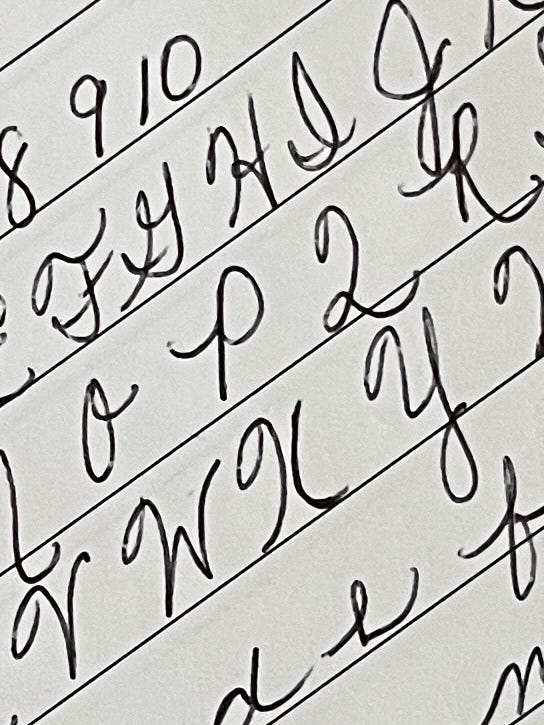 8 9 10
F G H I J
O P Q R
V W X Y
d e f